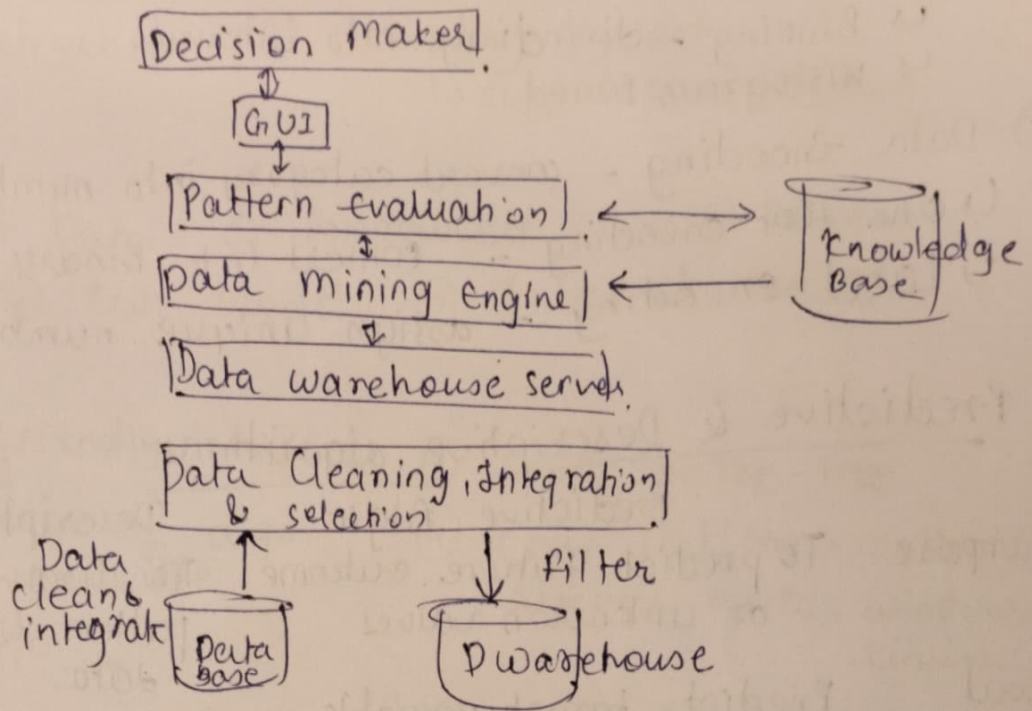 Decision Maker
GUI
Pattern Evaluation
Knowledge
Base
Data Mining Engine
Data Warehouse Server
Data Cleaning, Integration
& selection
Data
clean &
integrat
Filter
Data
Base
D warehouse